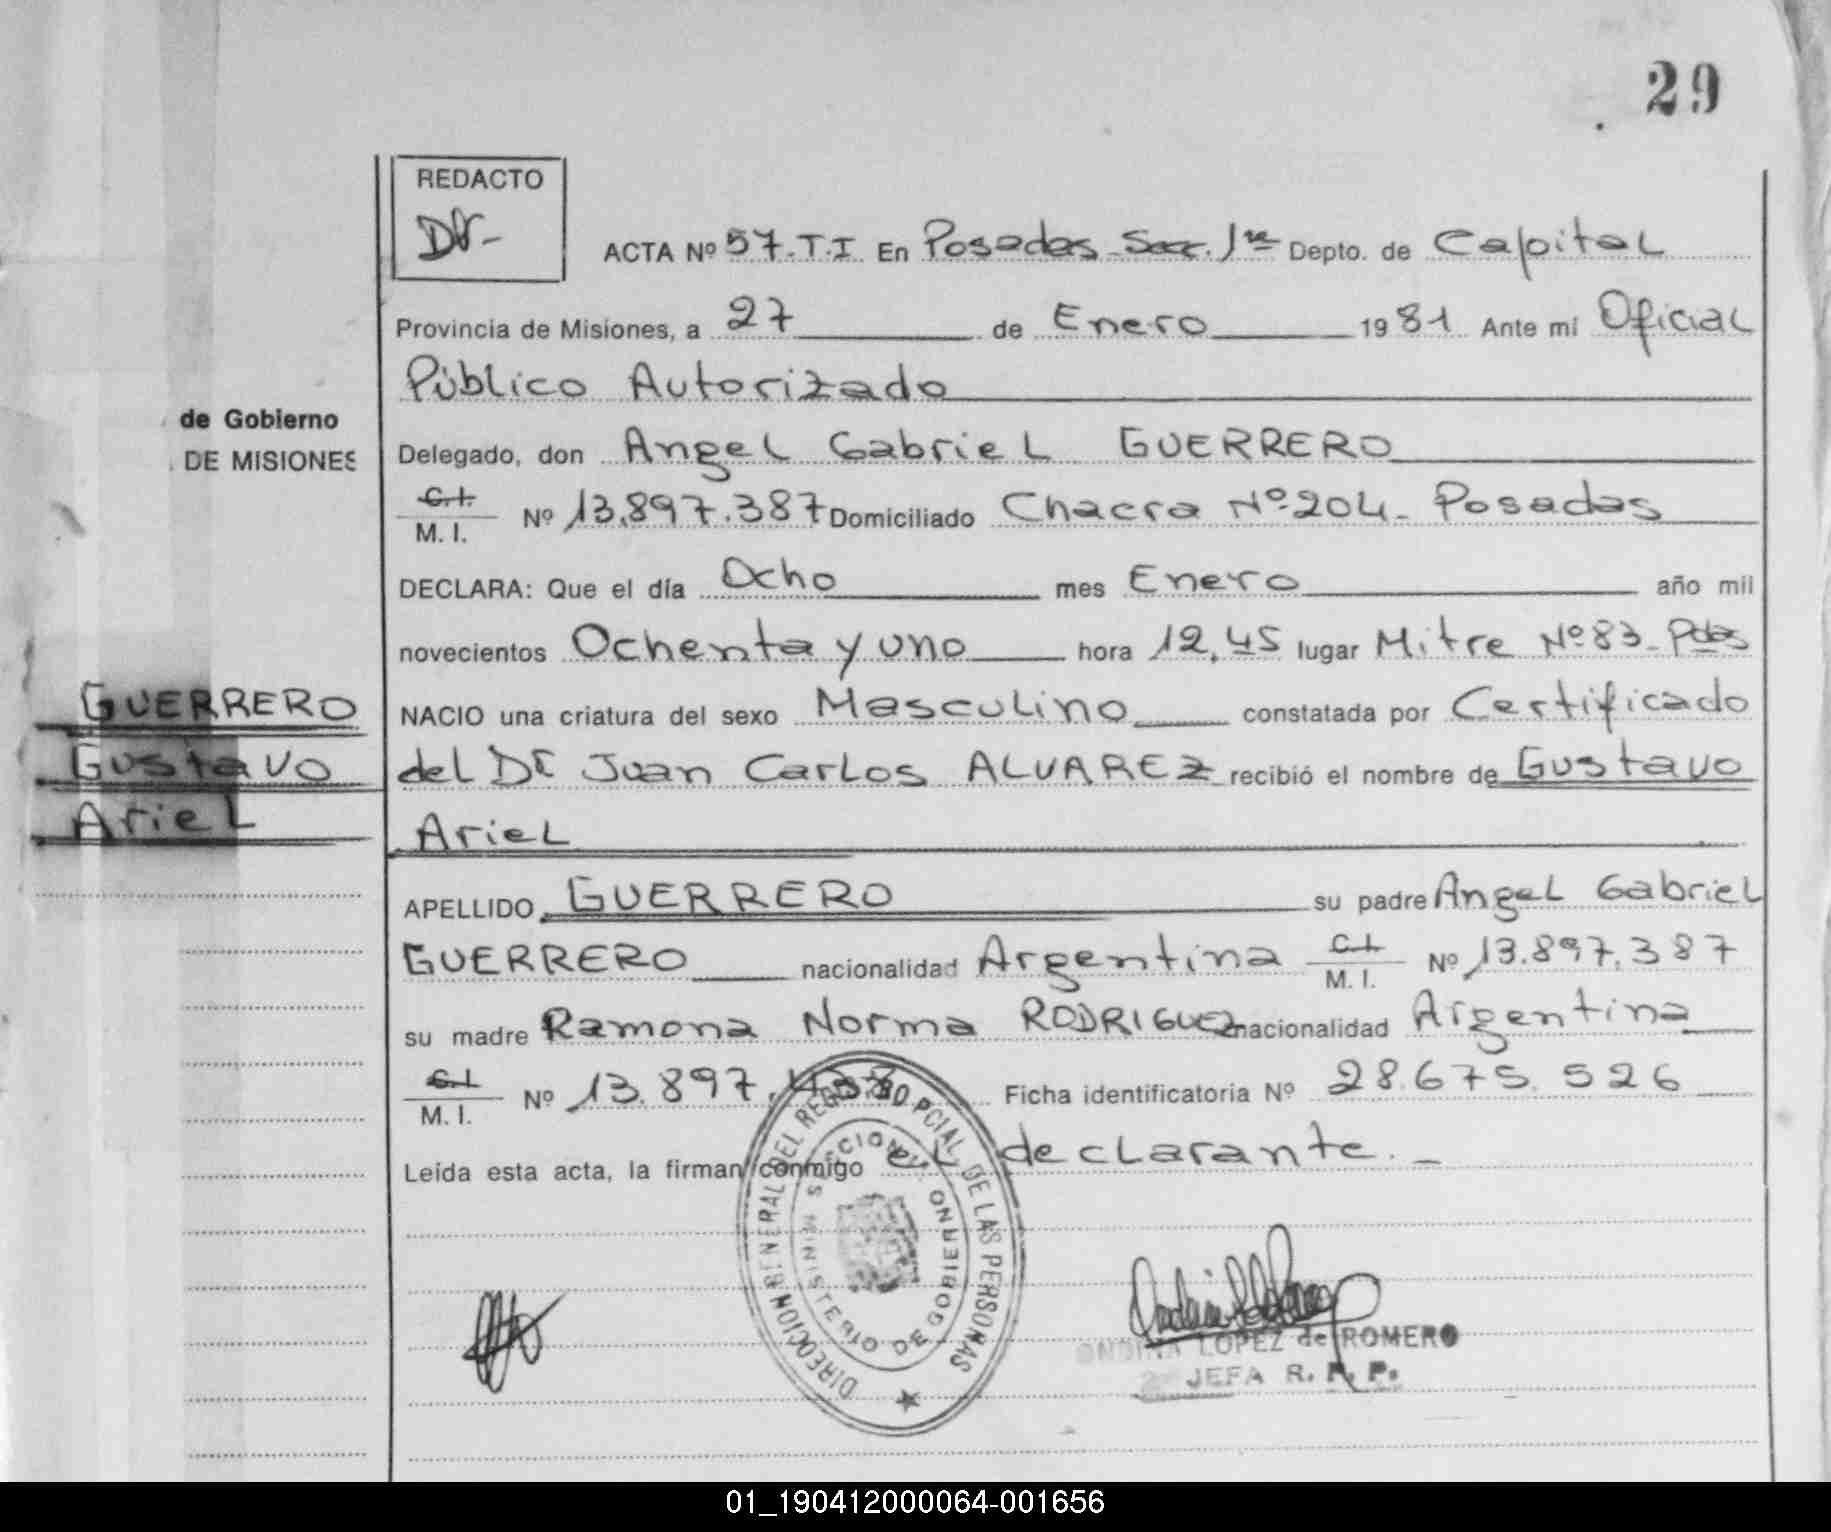 29
REDACTO
ACTA Nº 57.T.I En Posadas Secc. 1ra Depto. de Capital
Provincia de Misiones, a 27 de Enero 1981 Ante mi Oficial
Público Autorizado
de Gobierno
DE MISIONES
Delegado, don Angel Gabriel GUERRERO
C.I.
M. I. Nº 13.897.387 Domiciliado Chacra Nº 204 - Posadas
DECLARA: Que el día Ocho mes Enero año mil
novecientos Ochenta y uno hora 12,45 lugar Mitre Nº 83 - Pdas
GUERRERO
Gustavo
Ariel
NACIO una criatura del sexo Masculino constatada por Certificado
del Dr Juan Carlos ALVAREZ recibió el nombre de Gustavo
Ariel
APELLIDO GUERRERO su padre Angel Gabriel
GUERRERO nacionalidad Argentina C.I. M. I. Nº 13.897.387
su madre Ramona Norma RODRIGUEZ nacionalidad Argentina
C.I.
M. I. Nº 13.897. Ficha identificatoria Nº 28.675.526
Leída esta acta, la firman conmigo el declarante.-
DIRECCION GENERAL DEL REGISTRO PCIAL. DE LAS PERSONAS
MINISTERIO DE GOBIERNO
ONDINA LOPEZ de ROMERO
JEFA R. P. P.
01_190412000064-001656